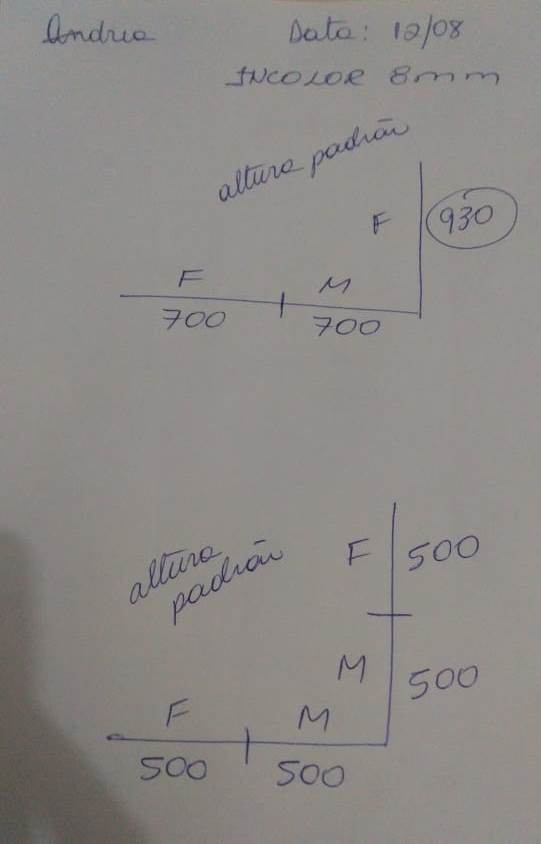 Andria Data: 12/08
INCOLOR 8mm
altura padrão
F 930
F M
700 700
altura
padrão
F 500
M 500
F M
500 500